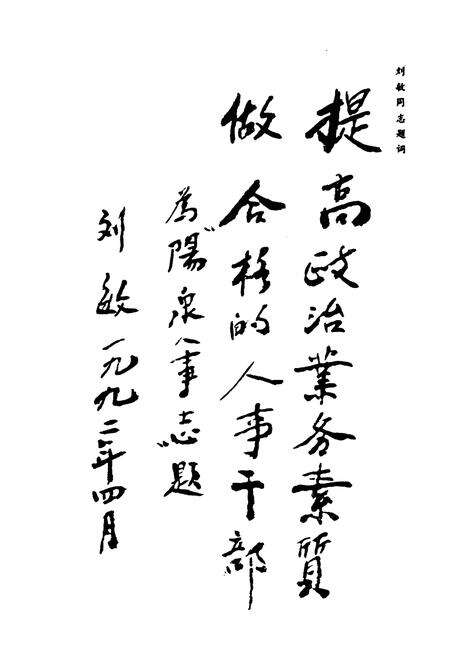 刘敏同志题词
提高政治業务素質
做合格的人事干部
為陽泉人事志題
刘敏一九九二年四月